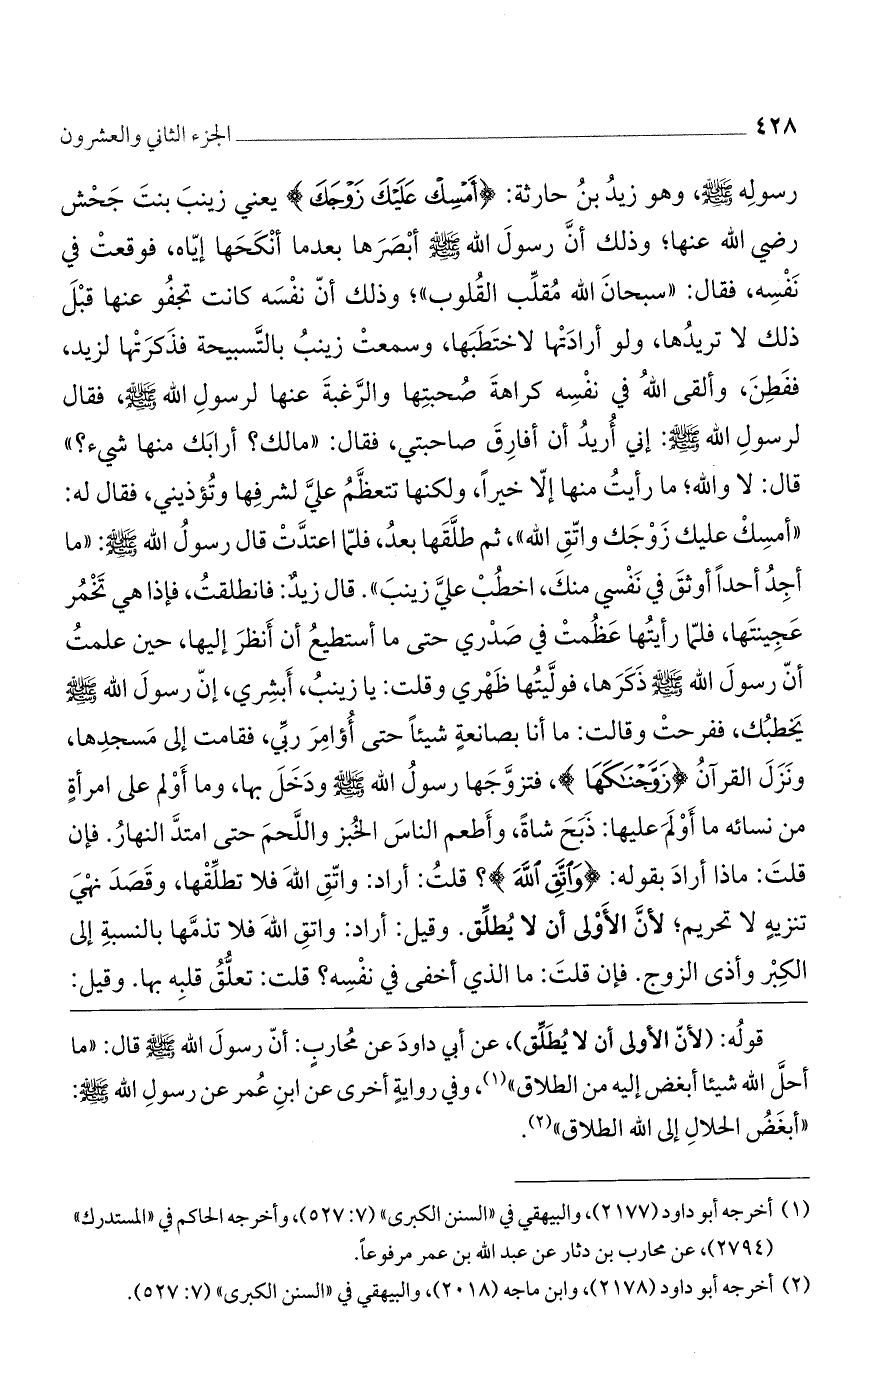 ٤٢٨ الجزء الثاني والعشرون
رسولِه ﷺ، وهو زيدُ بنُ حارثة: ﴿أَمْسِكْ عَلَيْكَ زَوْجَكَ﴾ يعني زينبَ بنتَ جَحْش
رضي الله عنها؛ وذلك أنَّ رسولَ الله ﷺ أبْصَرَها بعدما أنْكَحَها إيّاه، فوقعتْ في
نَفْسِه، فقال: «سبحانَ الله مُقلِّب القُلوب»؛ وذلك أنّ نفسَه كانت تجفُو عنها قبْلَ
ذلك لا تريدُها، ولو أرادَتْها لاختَطَبَها، وسمعتْ زينبُ بالتَّسبيحة فذَكَرَتْها لزيد،
ففَطِنَ، وألقى اللهُ في نفْسِه كراهةَ صُحبتِها والرَّغبةَ عنها لرسولِ الله ﷺ، فقال
لرسولِ الله ﷺ: إني أُريدُ أن أفارِقَ صاحبتي، فقال: «مالك؟ أرابَك منها شيء؟»
قال: لا والله؛ ما رأيتُ منها إلّا خيراً، ولكنها تتعظَّمُ عليَّ لشرفِها وتُؤذيني، فقال له:
«أمسِكْ عليك زَوْجَك واتّقِ الله»، ثم طلَّقَها بعدُ، فلمّا اعتدَّتْ قال رسولُ الله ﷺ: «ما
أجِدُ أحداً أوثقَ في نَفْسي منكَ، اخطُبْ عليَّ زينبَ». قال زيدٌ: فانطلقتُ، فإذا هي تَخْمُر
عَجِينتَها، فلمّا رأيتُها عظُمتْ في صَدْري حتى ما أستطيعُ أن أنظرَ إليها، حين علمتُ
أنّ رسولَ الله ﷺ ذَكَرَها، فولَّيتُها ظَهْري وقلت: يا زينبُ، أَبشِري، إنّ رسولَ الله ﷺ
يَخطبُك، ففرحتْ وقالت: ما أنا بصانعةٍ شيئاً حتى أُؤامِرَ ربِّي، فقامت إلى مَسجدِها،
ونَزَلَ القرآنُ ﴿زَوَّجْنَاكَهَا﴾، فتزوَّجَها رسولُ الله ﷺ ودَخَلَ بها، وما أوْلم على امرأةٍ
من نسائه ما أوْلَمَ عليها: ذَبَحَ شاةً، وأَطعم الناسَ الخُبز واللَّحمَ حتى امتدَّ النهارُ. فإن
قلتَ: ماذا أرادَ بقوله: ﴿وَٱتَّقِ ٱللَّهَ﴾؟ قلتُ: أراد: واتّقِ اللهَ فلا تطلِّقْها، وقَصَدَ نهْيَ
تنزيهٍ لا تحريم؛ لأنَّ الأَوْلى أن لا يُطلِّق. وقيل: أراد: واتقِ اللهَ فلا تذمَّها بالنسبةِ إلى
الكِبْر وأذى الزوج. فإن قلتَ: ما الذي أخفى في نفْسِه؟ قلت: تعلُّقَ قلبِه بها. وقيل:
قولُه: (لأنّ الأولى أن لا يُطَلِّق)، عن أبي داودَ عن مُحاربٍ: أنّ رسولَ الله ﷺ قال: «ما
أحلَّ الله شيئا أبغض إليه من الطلاق»(١)، وفي روايةٍ أخرى عن ابنِ عُمر عن رسولِ الله ﷺ:
«أبغَضُ الحلالِ إلى الله الطلاق»(٢).
(١) أخرجه أبو داود (٢١٧٧)، والبيهقي في «السنن الكبرى» (٧: ٥٢٧)، وأخرجه الحاكم في «المستدرك»
(٢٧٩٤)، عن محارب بن دثار عن عبد الله بن عمر مرفوعاً.
(٢) أخرجه أبو داود (٢١٧٨)، وابن ماجه (٢٠١٨)، والبيهقي في «السنن الكبرى» (٧: ٥٢٧).